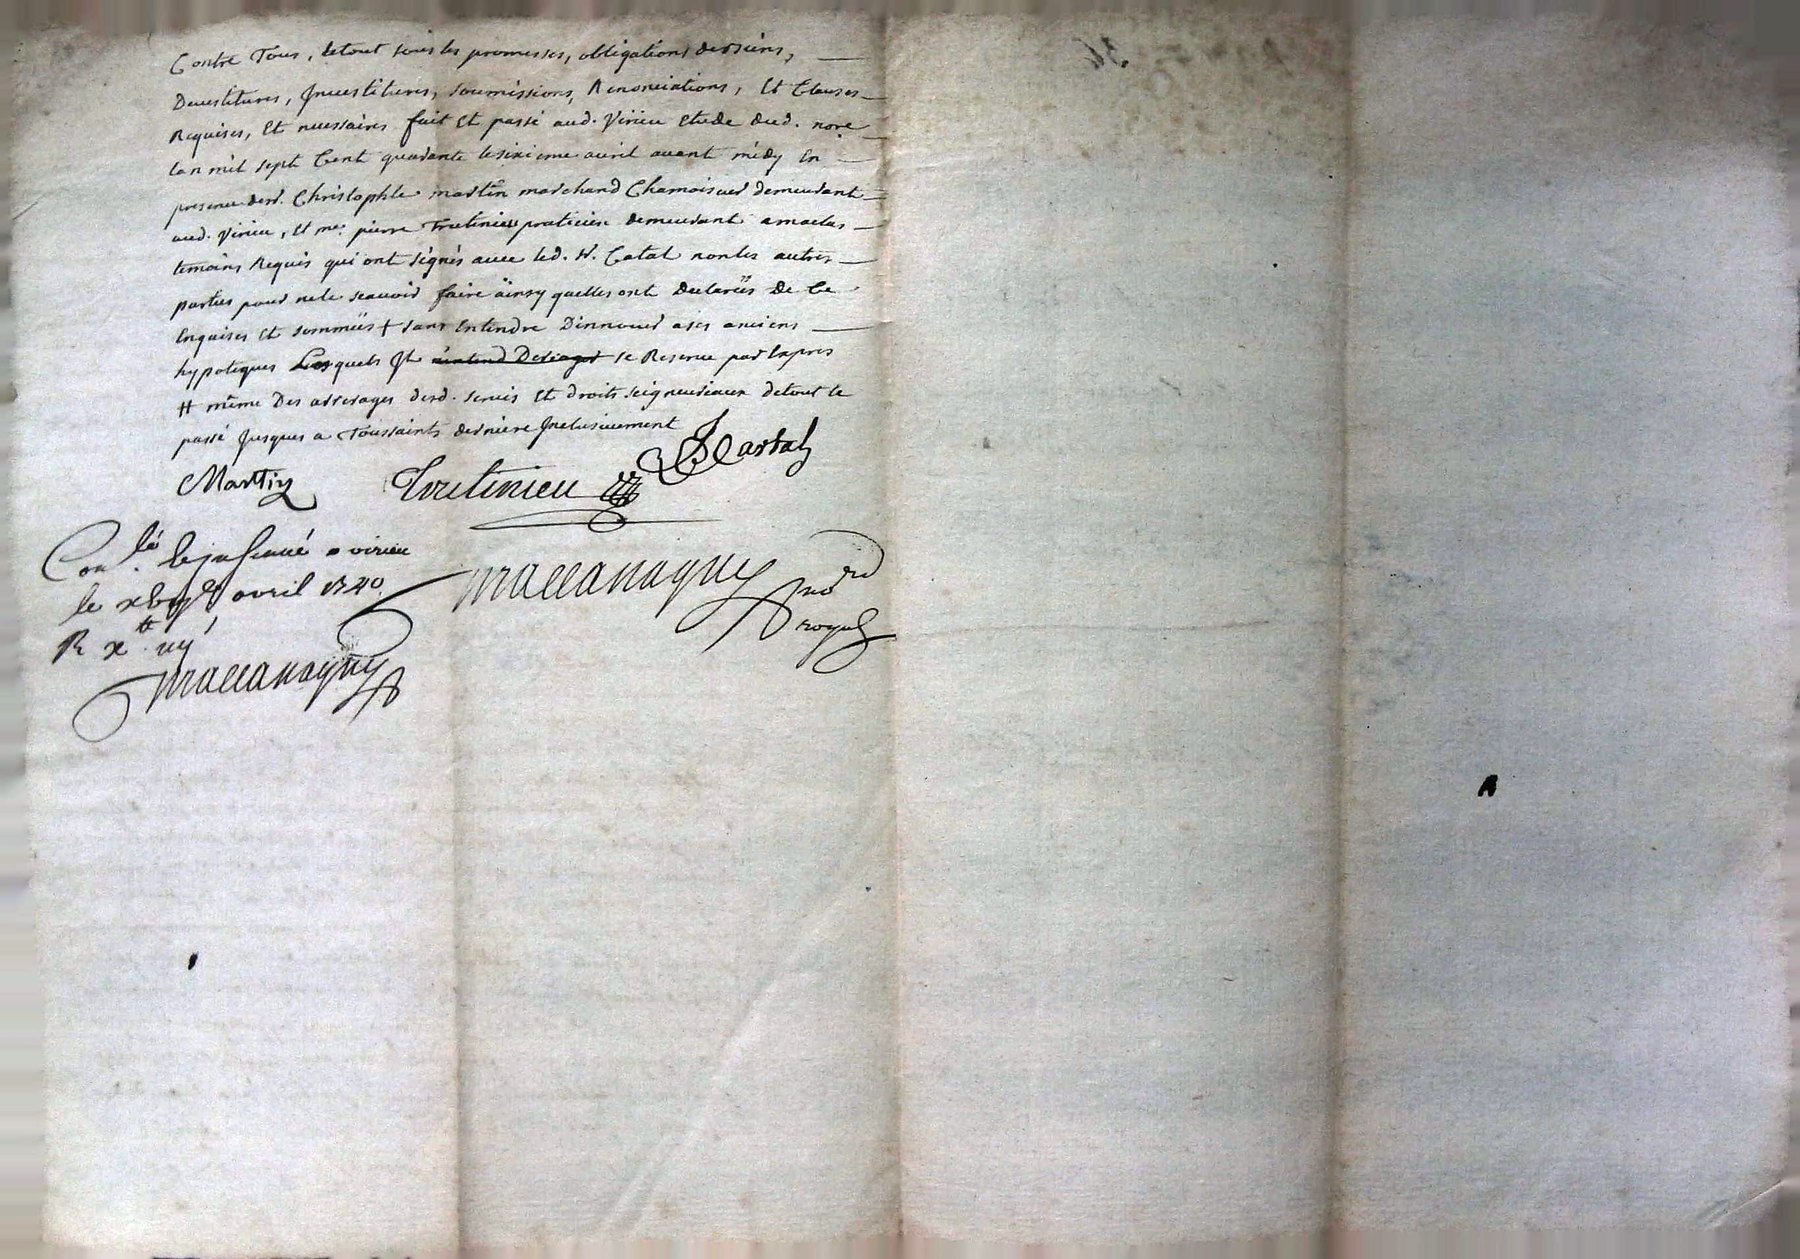 Contre Tous, letout sous les promesses, obligations desdiens,
Deuestitures, Jnuestitures, soumissions, Renonciations, Et Clauses
Requises, Et necessaires fait Et passé aud. Virieu Etude dud. nore
Lan mil sept Cent quarante le sixieme auril auant médy En
presence desr. Christophle martin marchand Chamoiseur demeurant
aud. Virieu, Et me. pierre Trutinieu praticien demeurant a
temoins Requis qui ont signés auec led. sr. Catal non les autres
parties pour ne le scauoir faire äinsy quelles ont declareës de Ce
Enquises Et sommeës + sans Entendre Dinnouer a ses anciens
hypoteques Lesquels Jl se Reserue par Exprès
# même Des arrerages desd. seruis Et droits seigneuriaux detout le
passé Jusques a Toussaints derniere Jnclusiuement
Martin Trutinieu Catal
Conlé. Et insinué a virieu
le avril 1740.
R x tt